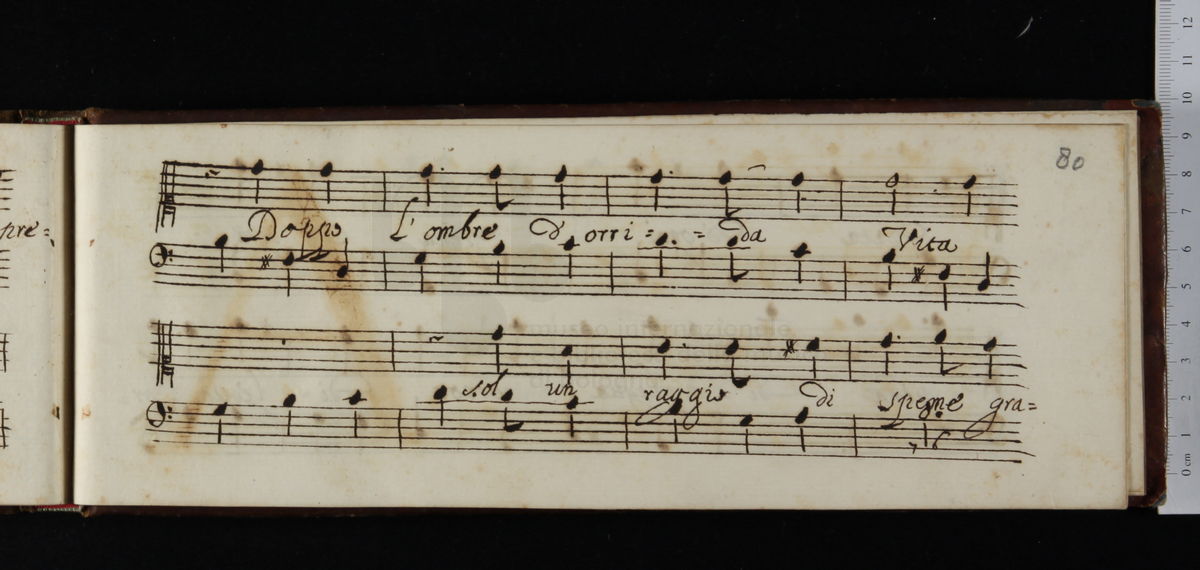 80
pre=
Doppo l'ombre d'orri= = da Vita
museo internazionale
sol un raggio di speme gra=
7 6
12
11
10
9
8
7
6
5
4
3
2
1
0 cm